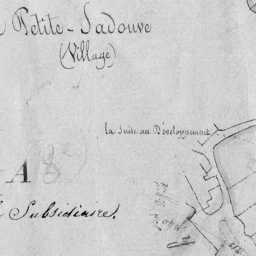 Petite-Ladouve
(Village)
la Suite au Développement
A
Subsidiaire.